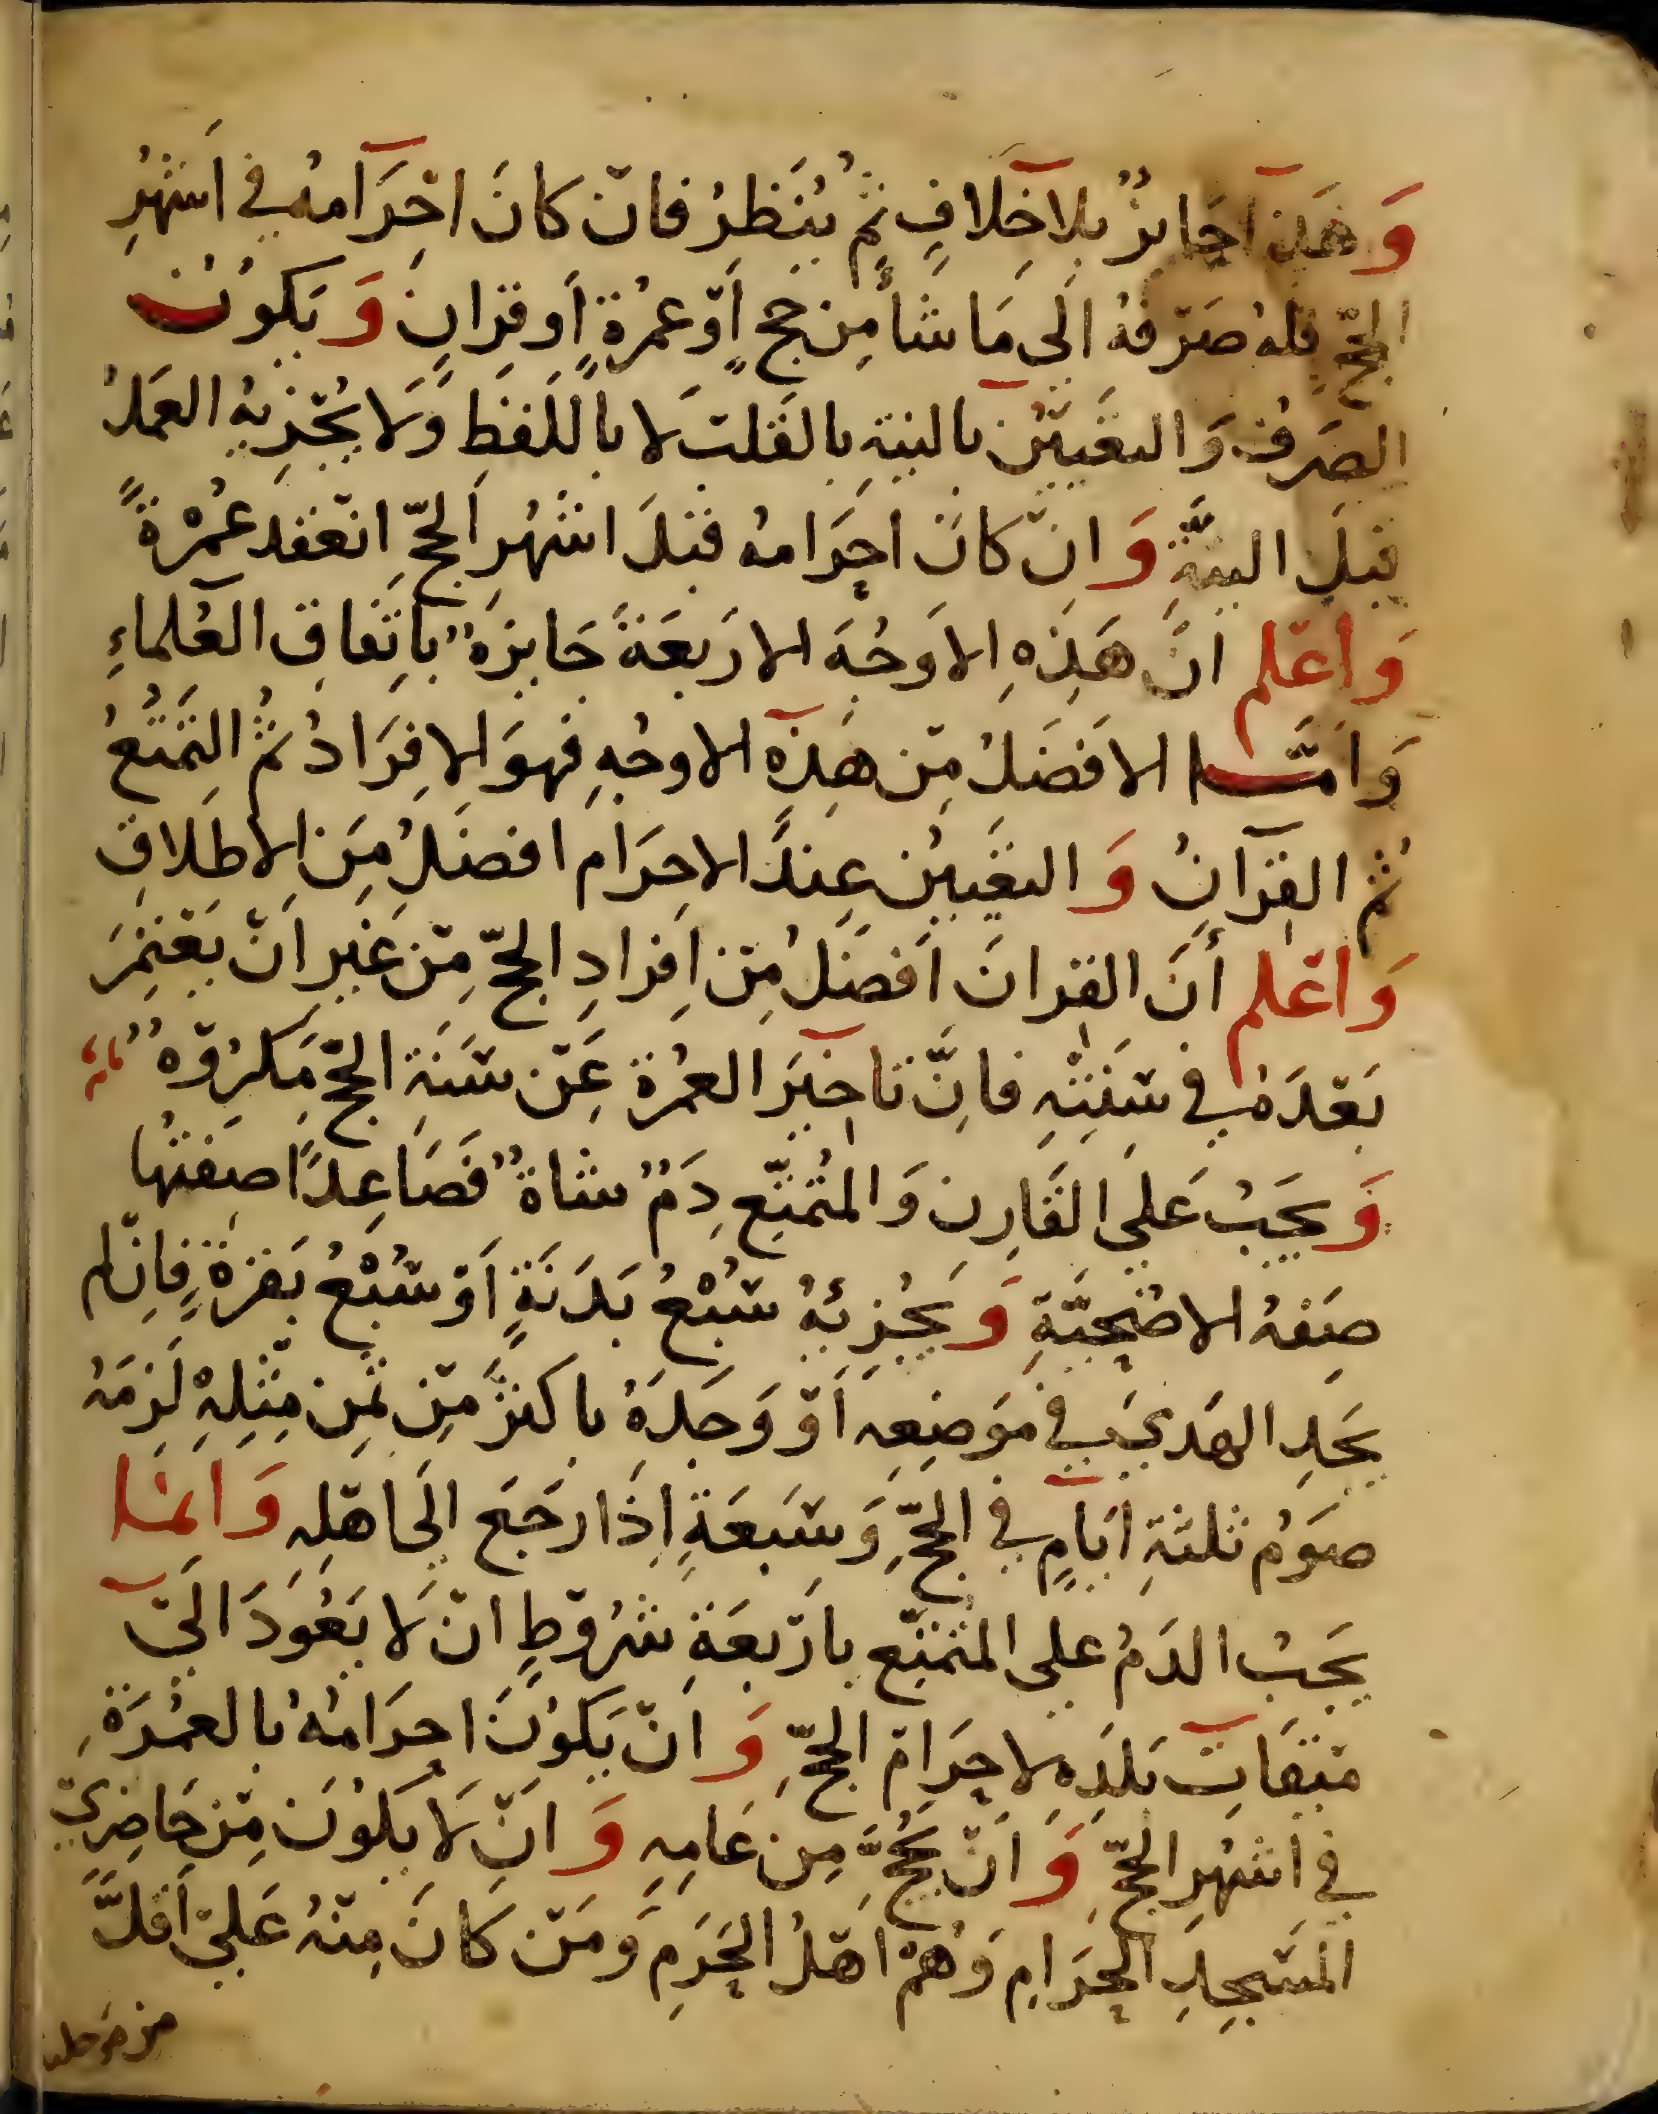 وَهَذَا جَايزٌ بلا خِلَافٍ ثُمَّ يُنظَرُ فَانْ كانَ احْرَامُهُ في اَشْهُرِ
الحجِّ فلهُ صَرْفهُ الَى مَا شَاءَ مِن حجٍ اَوْ عمْرةٍ اَو قرَانٍ وَيَكُونُ
الصَرْفُ وَالتعْيِيْنُ بالنيةِ بالقَلبِ لَا باللفظِ وَلَا يُجْزِيهِ العَمَلُ
قبلَ النيّةِ وَانْ كانَ احْرَامهُ قبْلَ اشْهُرِ الحجِّ انْعَقد عُمْرةً
وَاعْلم انَّ هَذِهِ الاَوجُهَ الارَبعَةَ جَايزةٌ باتفاقِ العُلماءِ
وَامَّا الافضَلُ مِنْ هَذِهِ الاوجُهِ فهوَ الافرَادُ ثمُ التمَتُّعُ
ثُم القرَانُ وَالتعْيِيْن عِندَ الاحرَام افضَلُ مِنَ الاطلاقِ
وَاعْلم أنَ القرانَ اَفضَلُ مِنْ اِفرادِ الحجِّ مِنْ غَيرِ انْ يَعْتَمِرَ
بَعْدَهُ في سَنَتِهِ فانِّ تاخيَرَ العمُرة عَنْ سَنَةِ الحجِّ مَكرُوْهٌ
وَيَجبُ عَلى القَارِنِ وَالمتمتّعِ دَمٌ شاةٌ فَصَاعِدًا صِفتُها
صِفةُ الاضْحِيَّةِ وَيُجْزِئهُ سُبْعُ بَدَنَةٍ اَوْ سُبْعُ بَقرَةٍ فَاِنْ لم
يَجدِ الهَديَ في مَوضِعِه اَوْ وَجَدَهُ باكثرَ مِنْ ثمنِ مِثلِهِ لَزِمَهُ
صَومُ ثلثةِ ايَامٍ في الحجِّ وَسَبعَةٍ اِذَا رَجَعَ الَى اهْلِهِ وَانمَا
يَجبُ الدَمُ على المتمتّعِ بارْبعَةِ شرُوْطٍ انْ لَا يَعُودَ الَى
مِيْقَاتِ بَلَدِهِ لاحْرَامِ الحجِّ وَانْ يَكونَ احرَامُهُ بالعمُرَةِ
في اشهُرِ الحجِّ وَانْ يَحُجَّ مِن عَامِهِ وَانْ لَا يَكُونَ مِنْ حَاضِريْ
المسْجِدِ الحَرَامِ وَهُمْ اهْلُ الحَرَمِ وَمَنْ كَانَ مِنْهُ عَلى اَقلَّ
من مرحلتـ